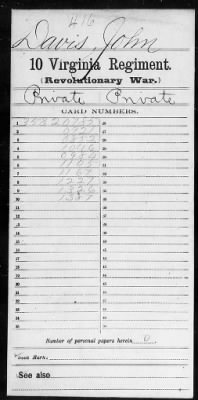 416
Davis, John
10 Virginia Regiment.
(Revolutionary War.)
Private Private
CARD NUMBERS.
1 26
2 27
3 28
4 29
5 30
6 31
7 32
8 1227 33
9 1326 34
10 1387 35
11 36
12 37
13 38
14 39
15 40
16 41
17 42
18 43
19 44
20 45
21 46
22 47
23 48
24 49
25 50
Number of personal papers herein 0
Book Mark:
See also